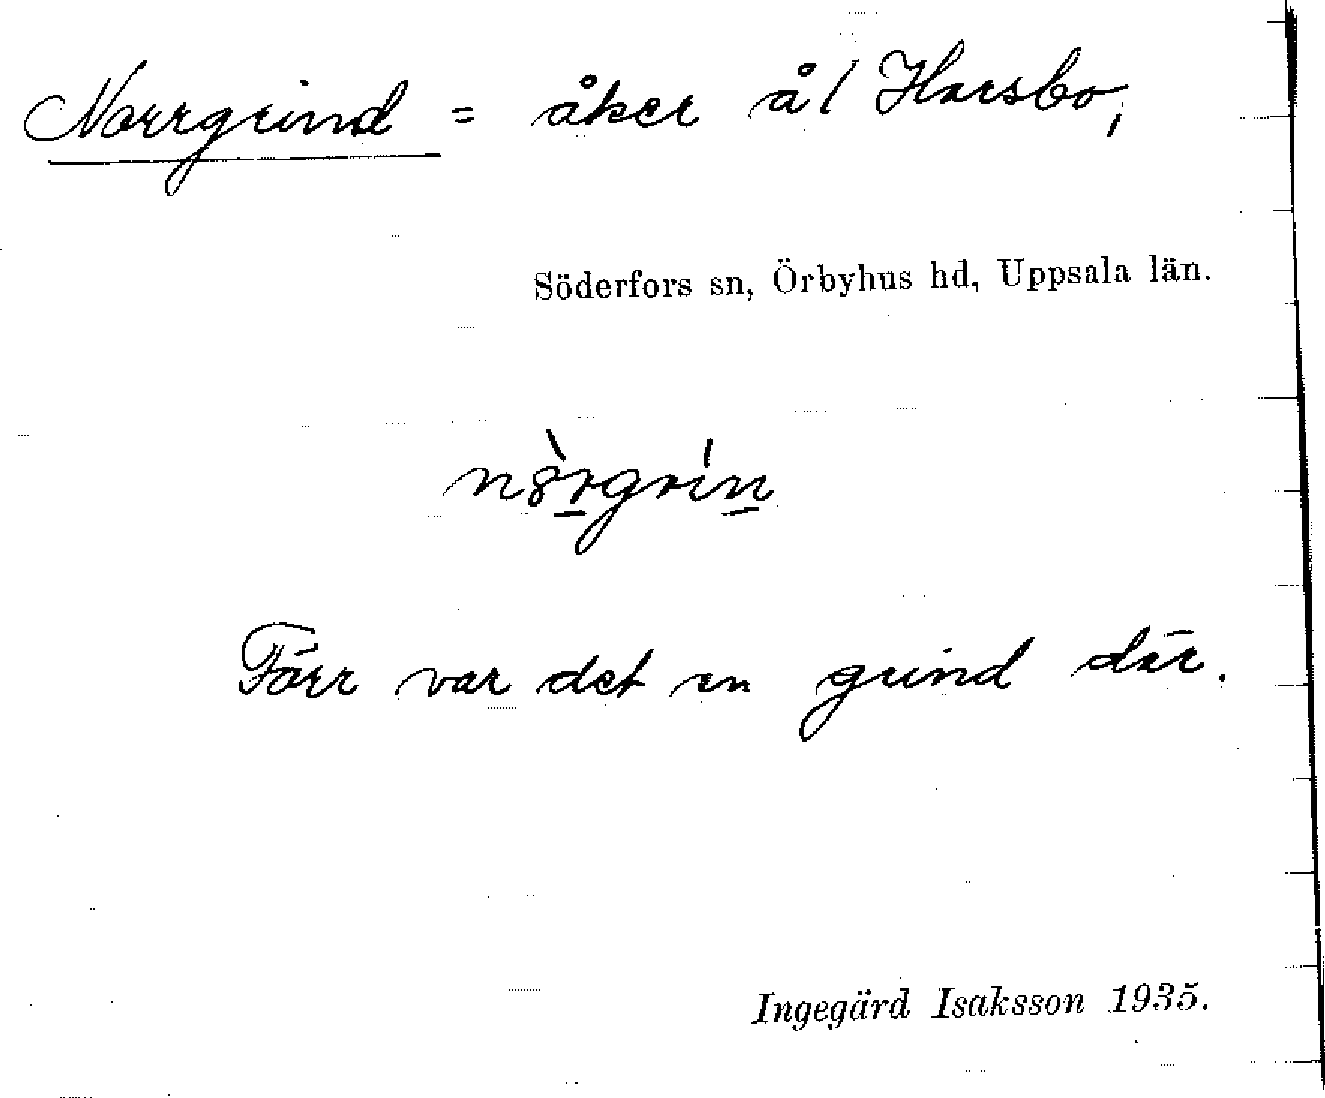 Norrgrind = åker å/ Harsbo,
Söderfors sn, Örbyhus hd, Uppsala län.
n8̀rgrin
Förr var det en grind där.
Ingegärd Isaksson 1935.